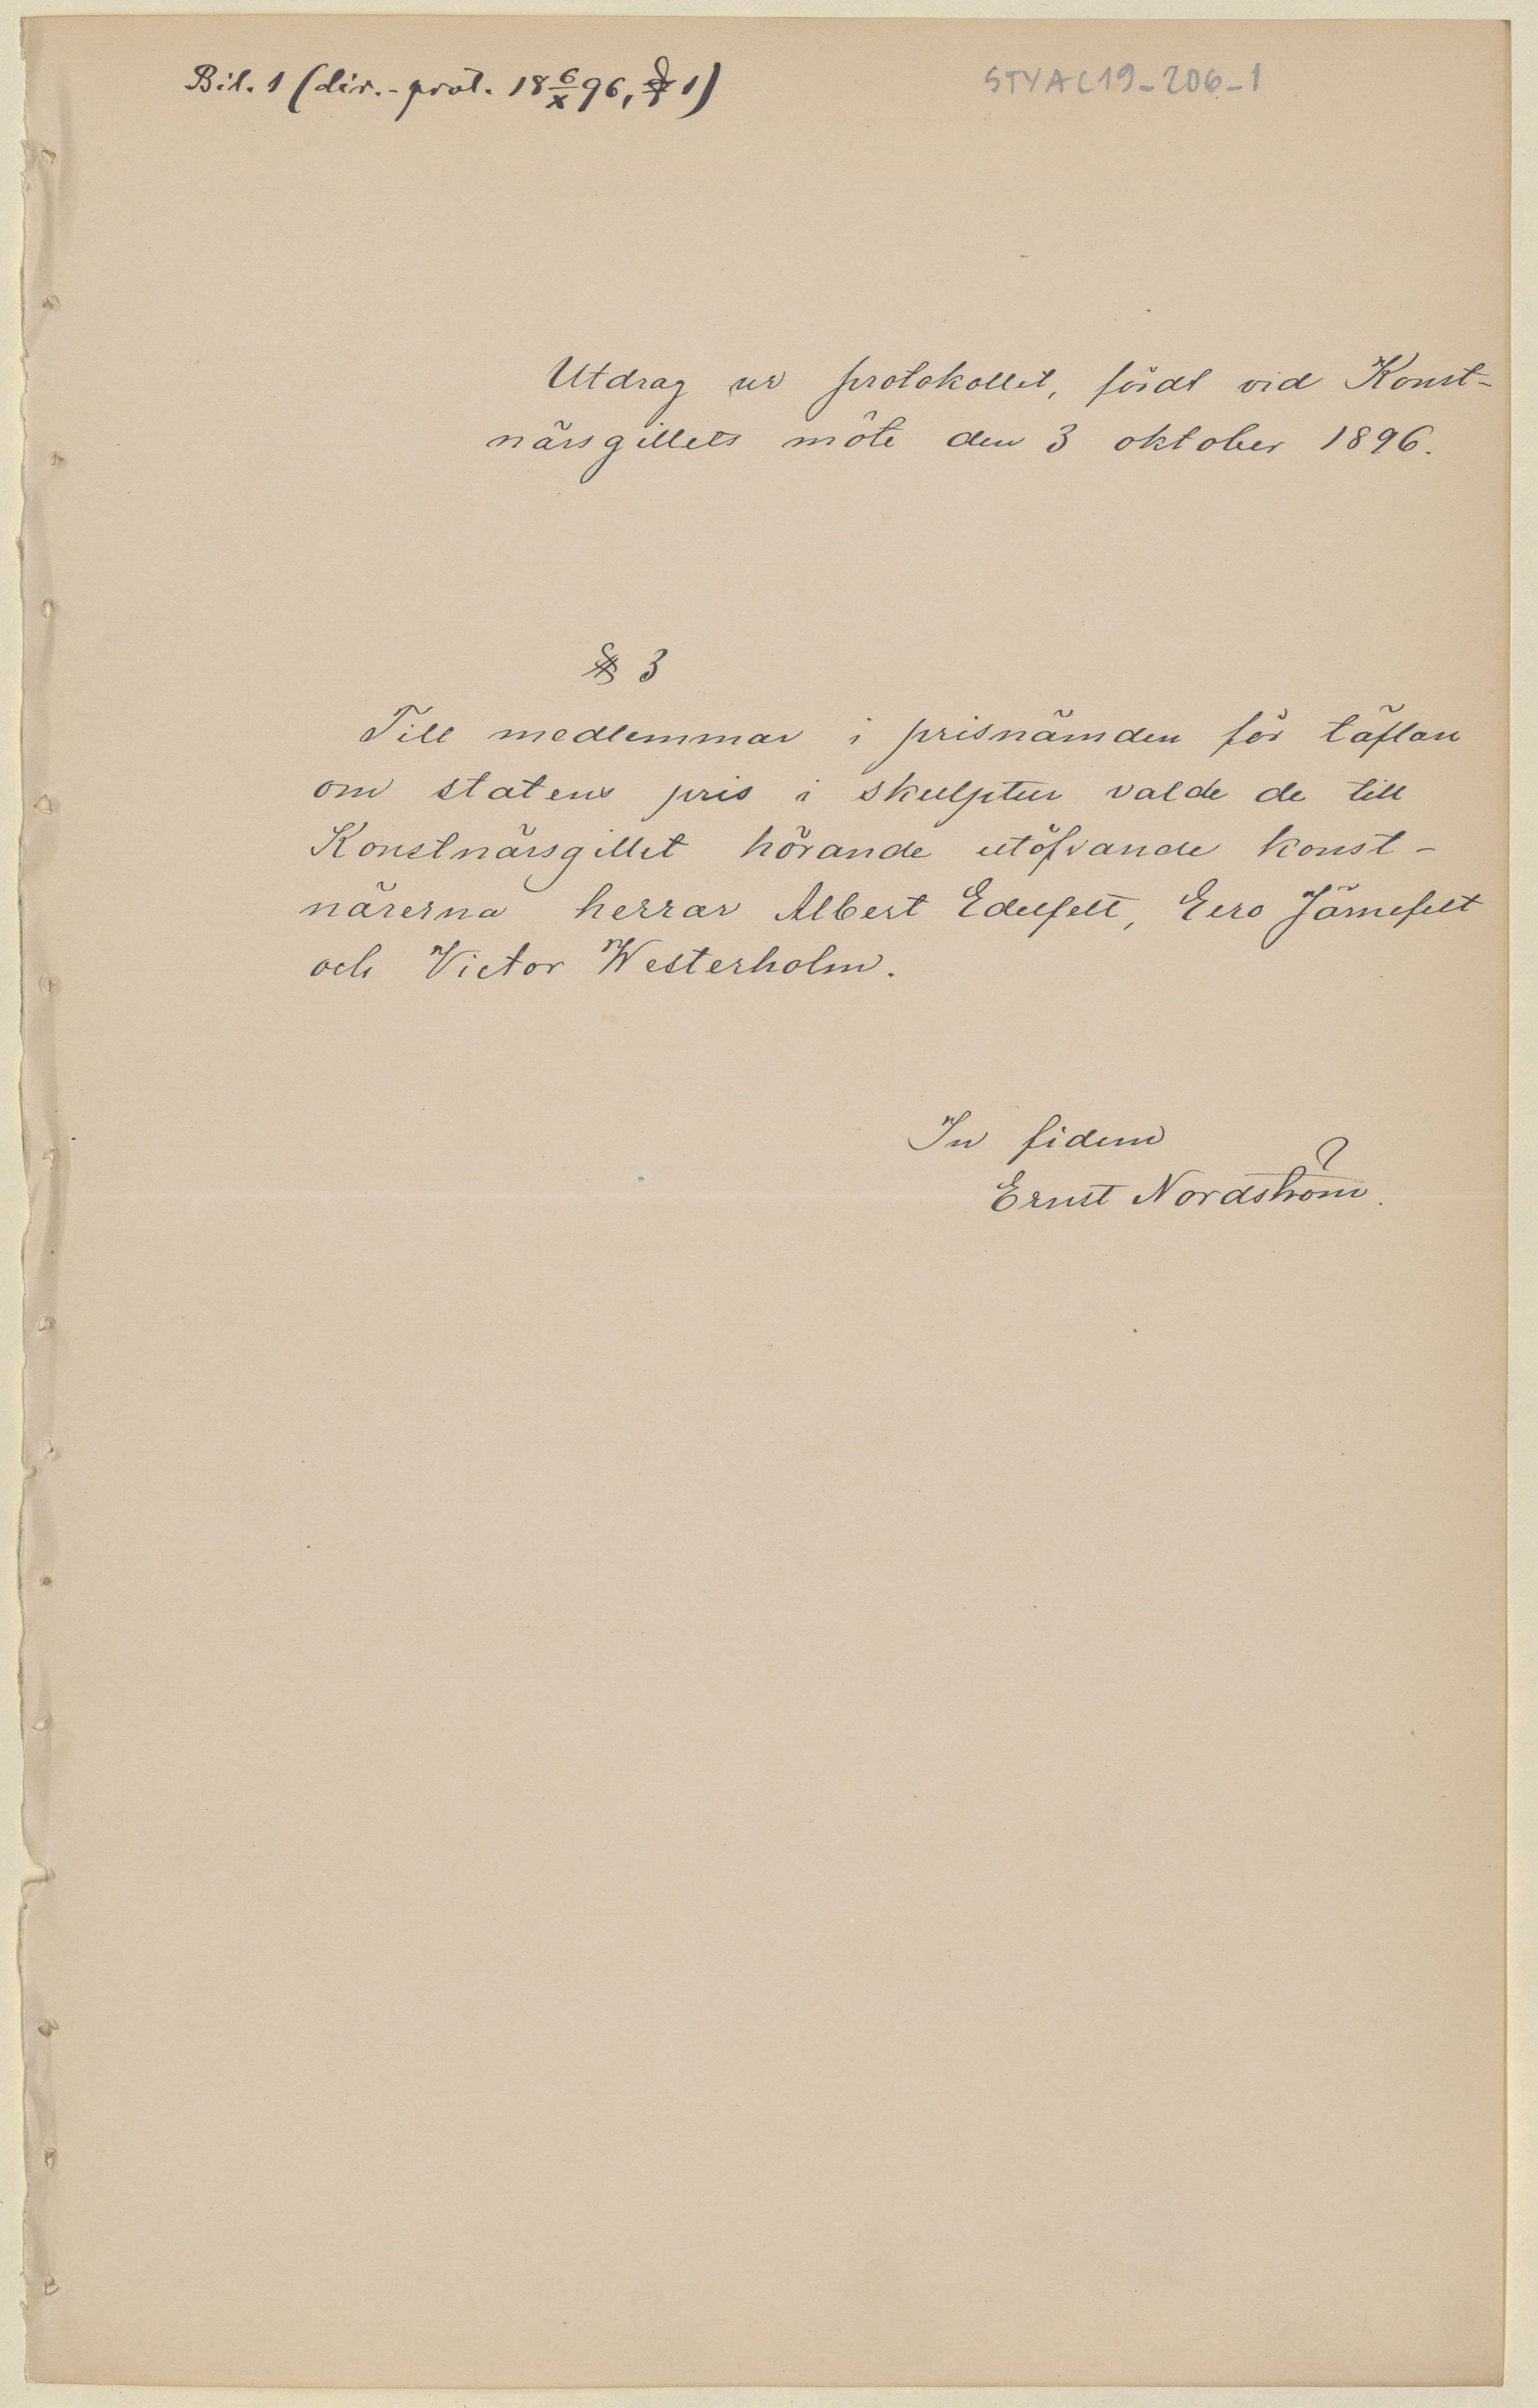 Bil. 1 (dir.-prot. 18 6/X 96, § 1)
STYA C19-206-1
Utdrag ur protokollet, fördt vid Konst-
närsgillets möte den 3 oktober 1896.
§ 3
Till medlemmar i prisnämden för täflan
om statens pris i skulptur valde de till
Konstnärsgillet hörande utöfvande konst-
närerna herrar Albert Edelfelt, Eero Järnefelt
och Victor Westerholm.
In fidem
Ernst Nordström.